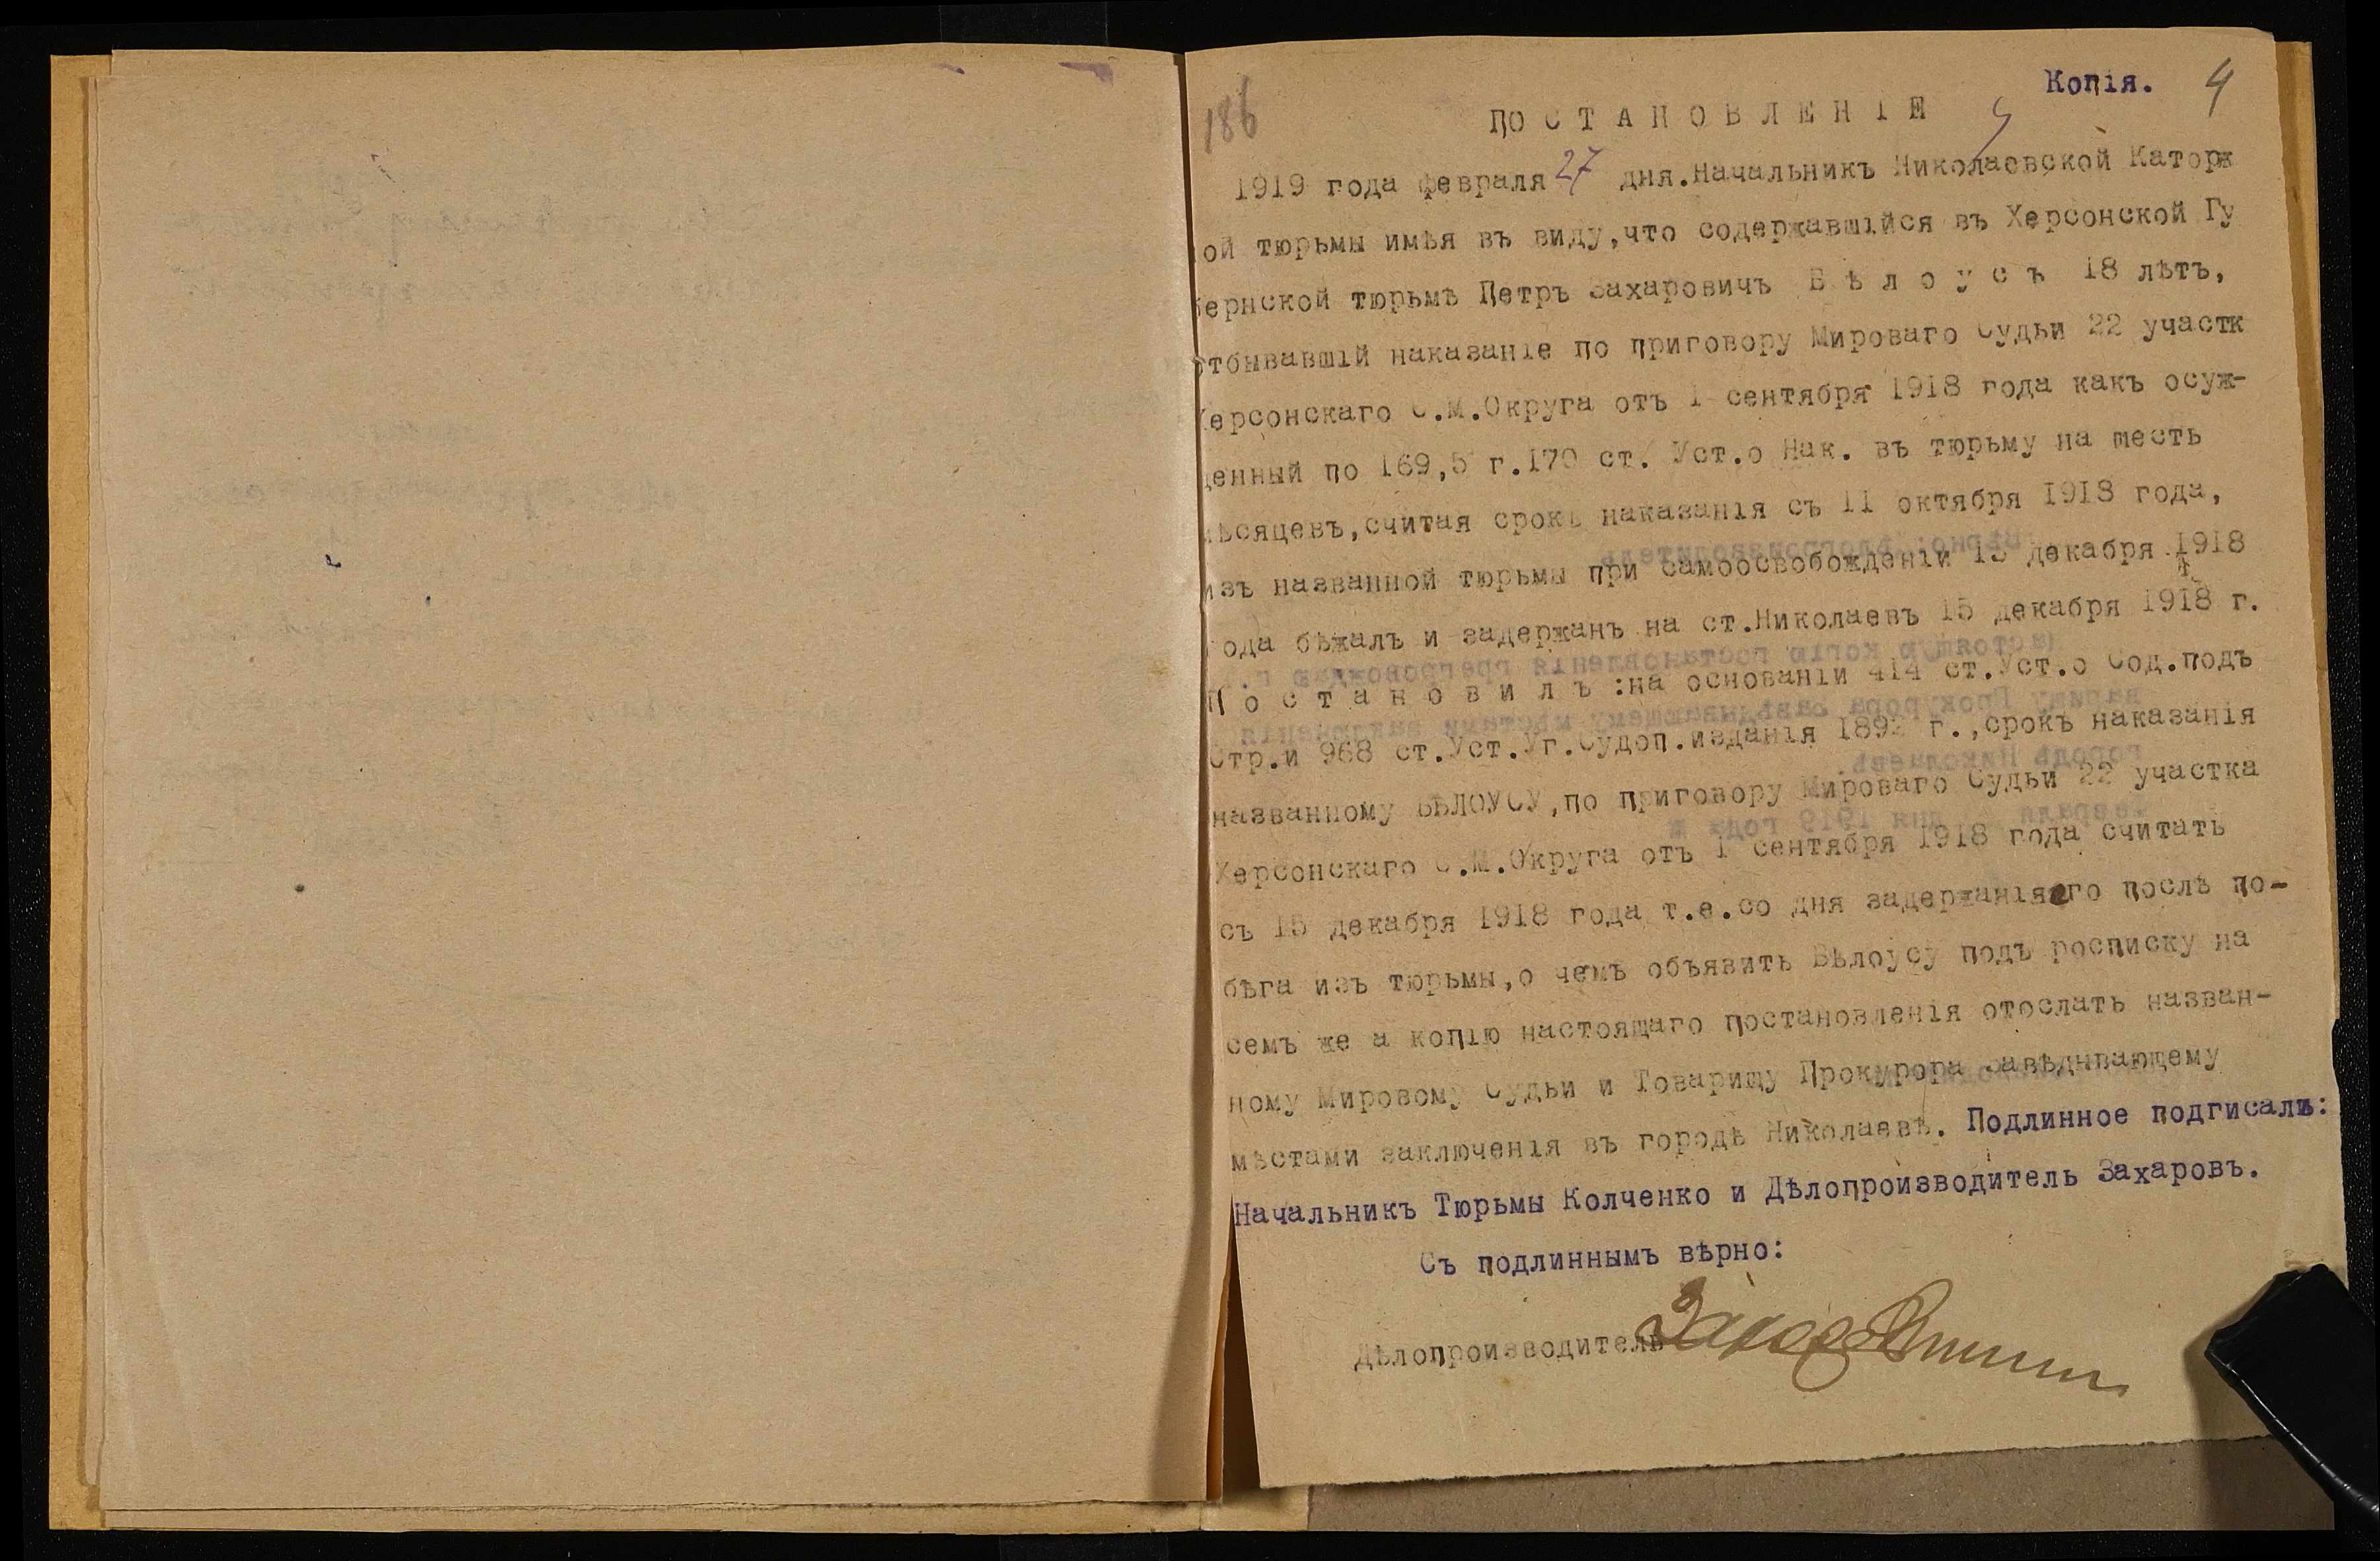 Копія.
4
186
ПОСТАНОВЛЕНІЕ
1919 года февраля 27 дня.Начальникъ Николаевской Каторж
ой тюрьмы имѣя въ виду,что содержавшійся въ Херсонской Гу
бернской тюрьмѣ Петръ Захаровичъ Бѣлоусъ 18 лѣтъ,
отбывавшій наказаніе по приговору Мирового Судьи 22 участк
Херсонскаго С.М.Округа отъ 1 сентября 1918 года какъ осуж-
денный по 169,5 г.170 ст. Уст.о Нак. въ тюрьму на шесть
мѣсяцевъ,считая срокъ наказанія съ 11 октября 1918 года,
изъ названной тюрьмы при самоосвобожденіи 13 декабря 1918
года бѣжалъ и задержанъ на ст.Николаевъ 15 декабря 1918 г.
Постановилъ:на основаніи 414 ст.Уст.о Сод.подъ
Стр.и 968 ст.Уст.Уг.Судоп.изданія 1892 г.,срокъ наказанія
названному БѢЛОУСУ,по приговору Мирового Судьи 22 участка
Херсонскаго С.М.Округа отъ 1 сентября 1918 года считать
съ 15 декабря 1918 года т.е.со дня задержанія его послѣ по-
бѣга изъ тюрьмы,о чемъ объявить Бѣлоусу подъ росписку на
семъ же а копію настоящаго постановленія отослать назван-
ному Мировому Судьи и Товарищу Прокурора Завѣдывающему
мѣстами заключенія въ городѣ Николаевѣ. Подлинное подписали:
Начальникъ Тюрьмы Колченко и Дѣлопроизводитель Захаровъ.
Съ подлиннымъ вѣрно:
Дѣлопроизводитель